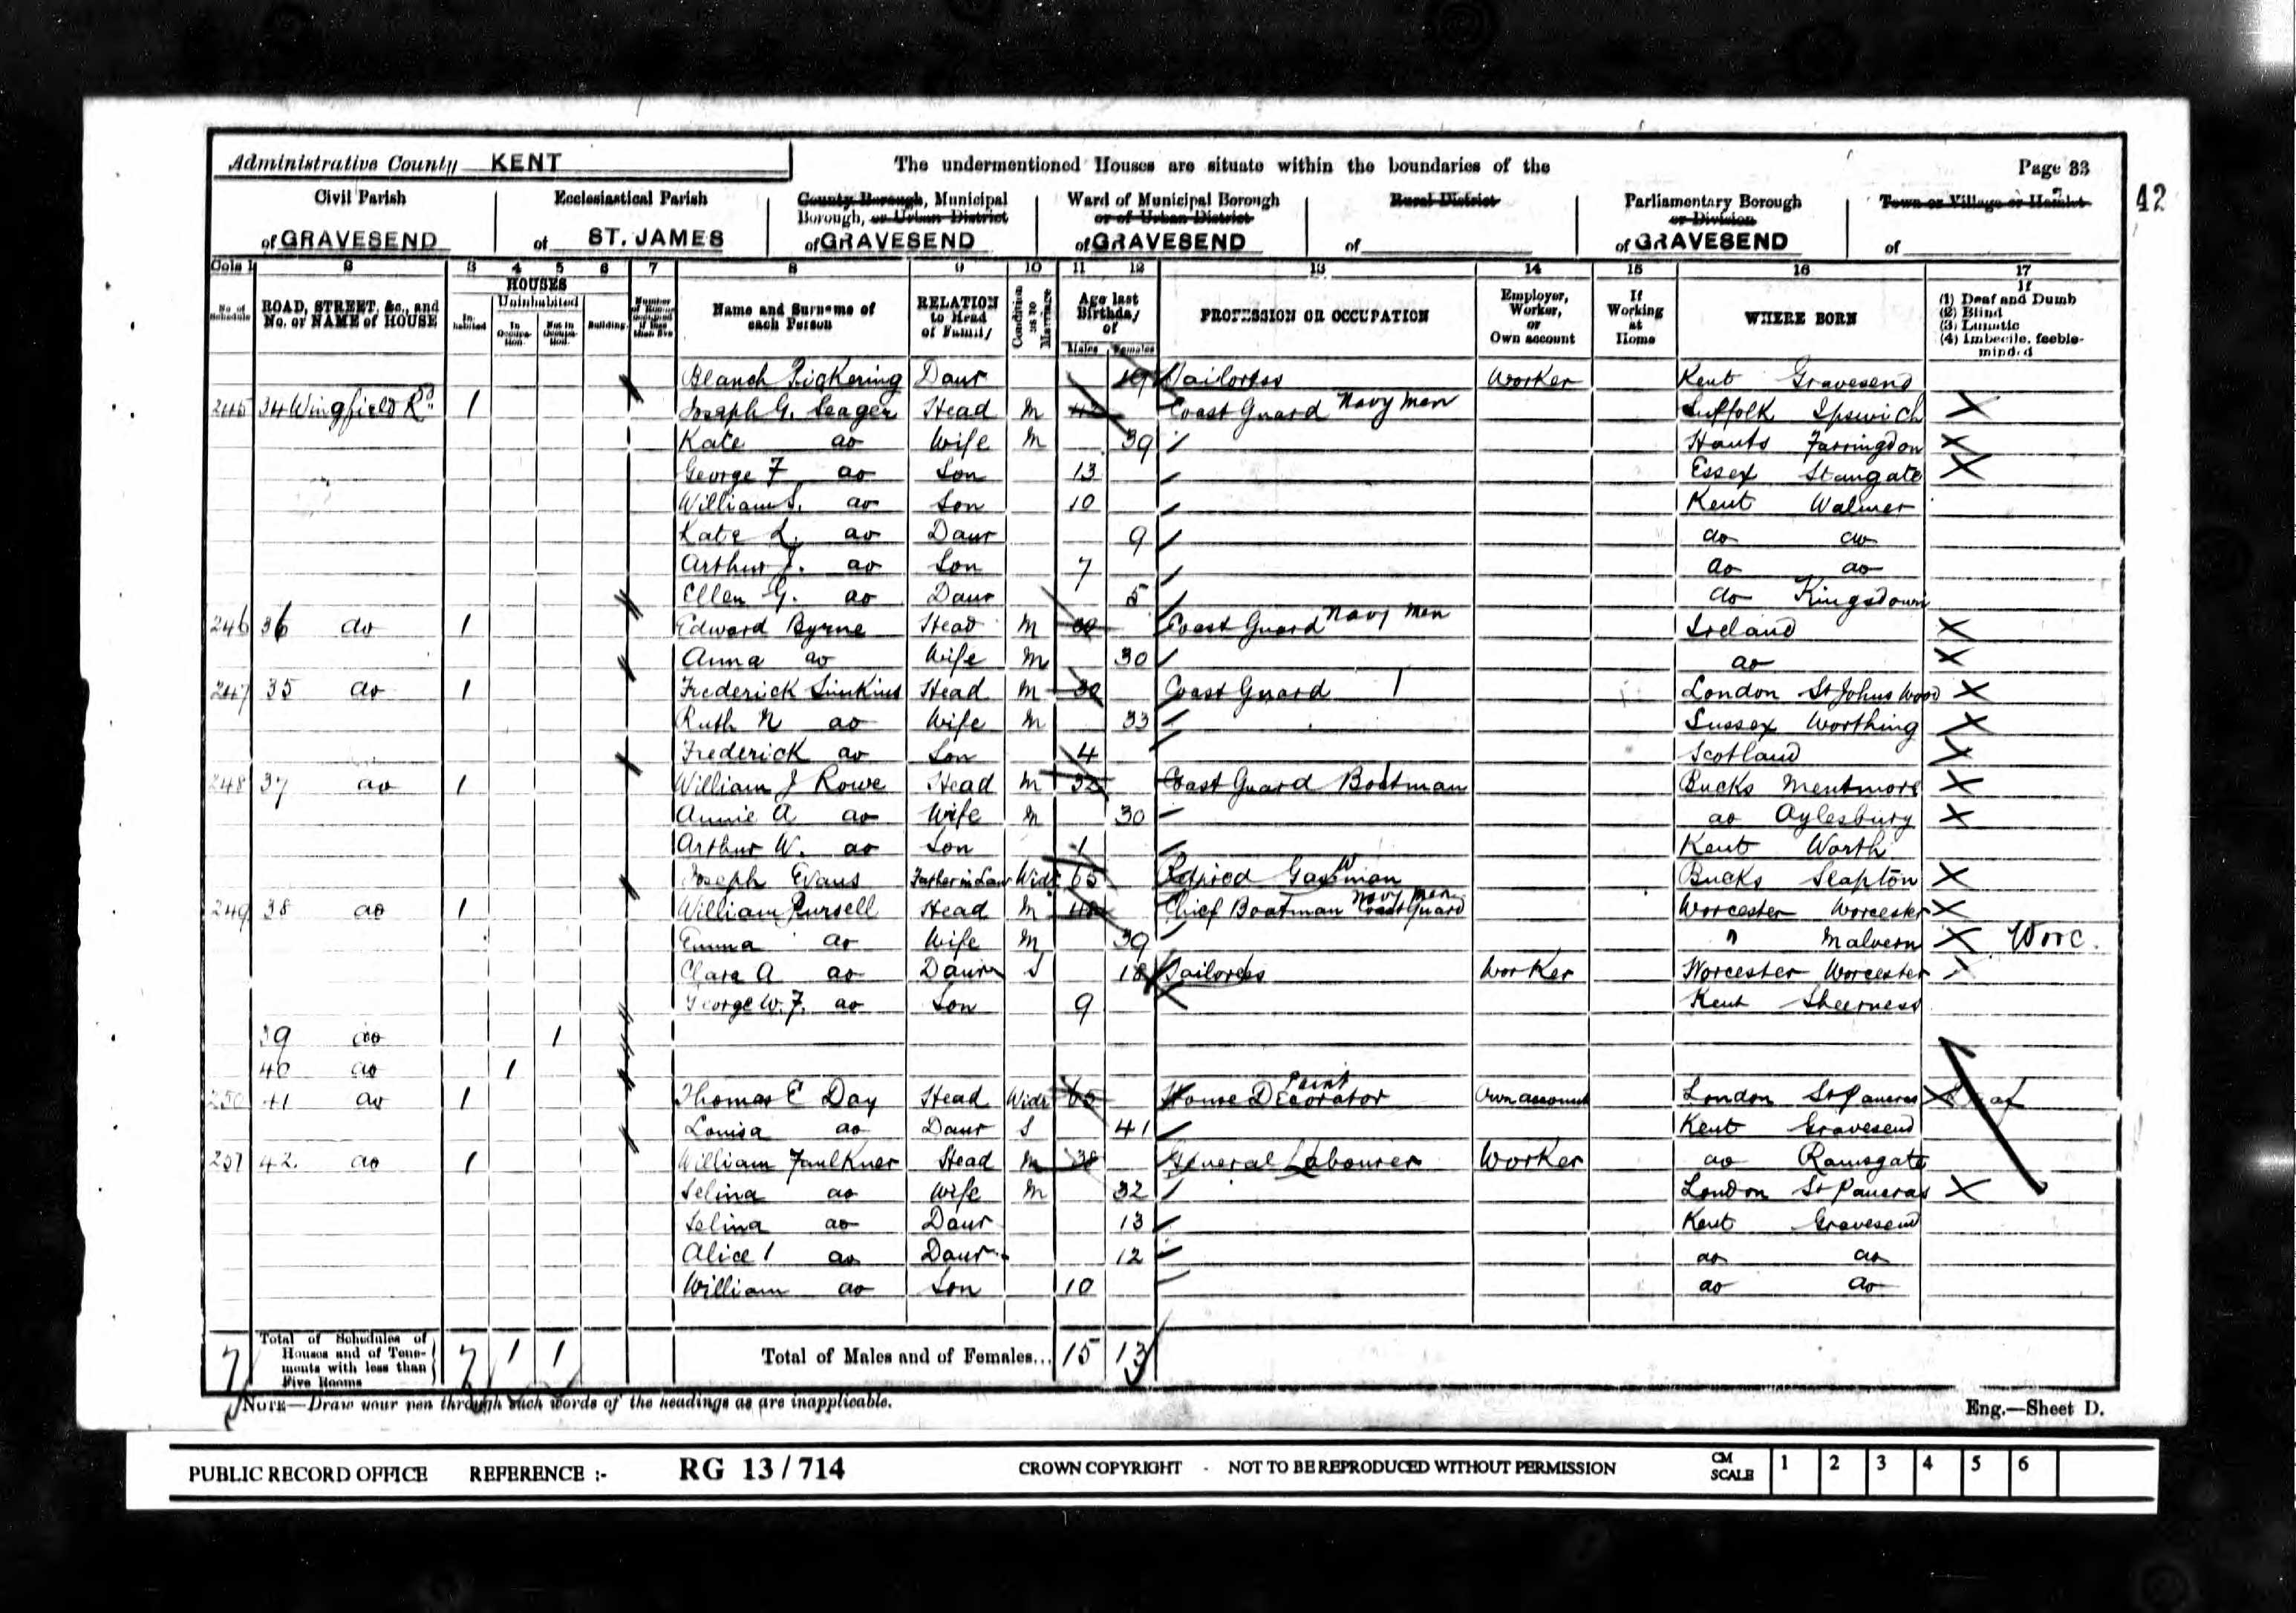 Administrative County KENT The undermentioned Houses are situate within the boundaries of the Page 33
42
Civil Parish Ecclesiastical Parish County Borough, Municipal Ward of Municipal Borough Rural District Parliamentary Borough Town or Village or Hamlet
Borough, or Urban District or of Urban District or Division
of GRAVESEND of ST. JAMES of GRAVESEND of GRAVESEND of of GRAVESEND of
Cols 1 2 3 4 5 6 7 8 9 10 11 12 13 14 15 16 17
No. of Schedule ROAD, STREET, &c., and No. or NAME of HOUSE HOUSES In-habited Uninhabited In Occupa-tion. Not in Occupa-tion. Building. Number of Rooms occupied if less than five Name and Surname of each Person RELATION to Head of Family Condition as to Marriage Age last Birthday of Males Females PROFESSION OR OCCUPATION Employer, Worker, or Own account If Working at Home WHERE BORN If (1) Deaf and Dumb (2) Blind (3) Lunatic (4) Imbecile, feeble-minded
Blanch Pickering Daur 19 Tailoress Worker Kent Gravesend
245 34 Wingfield Rd 1 Joseph G. Seager Head M Coast Guard Navy Men Suffolk Ipswich X
Kate do Wife M 39 Hants Farringdon X
George F do Son 13 Essex Stangate X
William S. do Son 10 Kent Walmer
Kate L. do Daur 9 do do
Arthur J. do Son 7 do do
Ellen G. do Daur 5 do Kingsdown
246 36 do 1 Edward Byrne Head M 30 Coast Guard Navy Men Ireland X
Anna do Wife M 30 do X
247 35 do 1 Frederick Simkins Head M 30 Coast Guard London St Johns Wood X
Ruth N do Wife M 33 Sussex Worthing X
Frederick do Son 4 Scotland X
248 37 do 1 William J Rowe Head M 32 Coast Guard Boatman Bucks Mentmore X
Annie A do Wife M 30 do Aylesbury X
Arthur W. do Son 1 Kent Worth
Joseph Evans Father in Law Widr 65 Retired Bucks Slapton X
249 38 do 1 William Pursell Head M 40 Chief Boatman Coast Guard Navy Men Worcester Worcester X
Emma do Wife M 39 " Malvern X Worc.
Clara A do Daur S 18 Tailoress Worker Worcester Worcester X
George W. F. do Son 9 Kent Sheerness
39 do 1
40 do 1
250 41 do 1 Thomas E Day Head Widr 65 House Decorator Paint Own account London St Pancras X
Louisa do Daur S 41 Kent Gravesend
251 42. do 1 William Faulkner Head M 38 General Labourer Worker do Ramsgate
Selina do Wife M 32 London St Pancras X
Selina do Daur 13 Kent Gravesend
Alice do Daur 12 do do
William do Son 10 do do
7 Total of Schedules of Houses and of Tene-ments with less than Five Rooms 7 1 1 Total of Males and of Females... 15 13
NOTE—Draw your pen through such words of the headings as are inapplicable. Eng.—Sheet D.
PUBLIC RECORD OFFICE REFERENCE :- RG 13/714 CROWN COPYRIGHT - NOT TO BE REPRODUCED WITHOUT PERMISSION CM SCALE 1 2 3 4 5 6